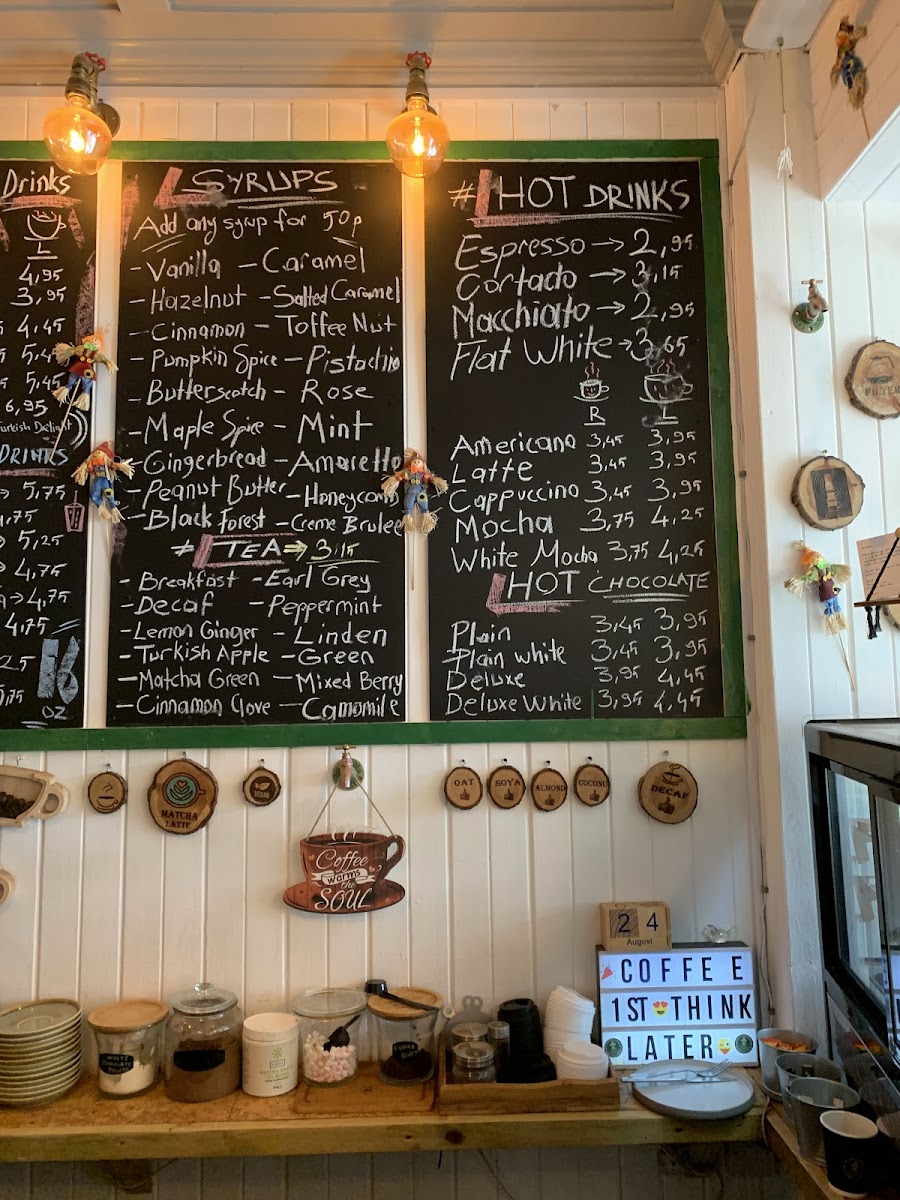 Drinks
L
4,95
3,95
4,45
5,45
5,45
6,95
Turkish Delight
DRINKS
5,75
4,75
5,25
4,75
4,75
4,75
OZ
SYRUPS
Add any syrup for 50p
- Vanilla - Caramel
- Hazelnut - Salted Caramel
- Cinnamon - Toffee Nut
- Pumpkin Spice - Pistachio
- Butterscotch - Rose
- Maple Spice - Mint
- Gingerbread - Amaretto
- Peanut Butter - Honeycom
- Black Forest - Creme Brulee
# TEA → 3,15
- Breakfast - Earl Grey
- Decaf - Peppermint
- Lemon Ginger - Linden
- Turkish Apple - Green
- Matcha Green - Mixed Berry
- Cinnamon Clove - Camomile
# HOT DRINKS
Espresso → 2,95
Cortado → 3,15
Macchiato → 2,95
Flat White → 3,65
R L
Americano 3,45 3,95
Latte 3,45 3,95
Cappuccino 3,45 3,95
Mocha 3,75 4,25
White Mocha 3,75 4,25
HOT CHOCOLATE
Plain 3,45 3,95
Plain white 3,45 3,95
Deluxe 3,95 4,45
Deluxe White 3,95 4,45
FILTER
MATCHA
LATTE
OAT
SOYA
ALMOND
COCONUT
DECAF
Coffee
warms
the
SOUL
24
August
COFFEE
1ST THINK
LATER
WHITE
CHOCOLATE